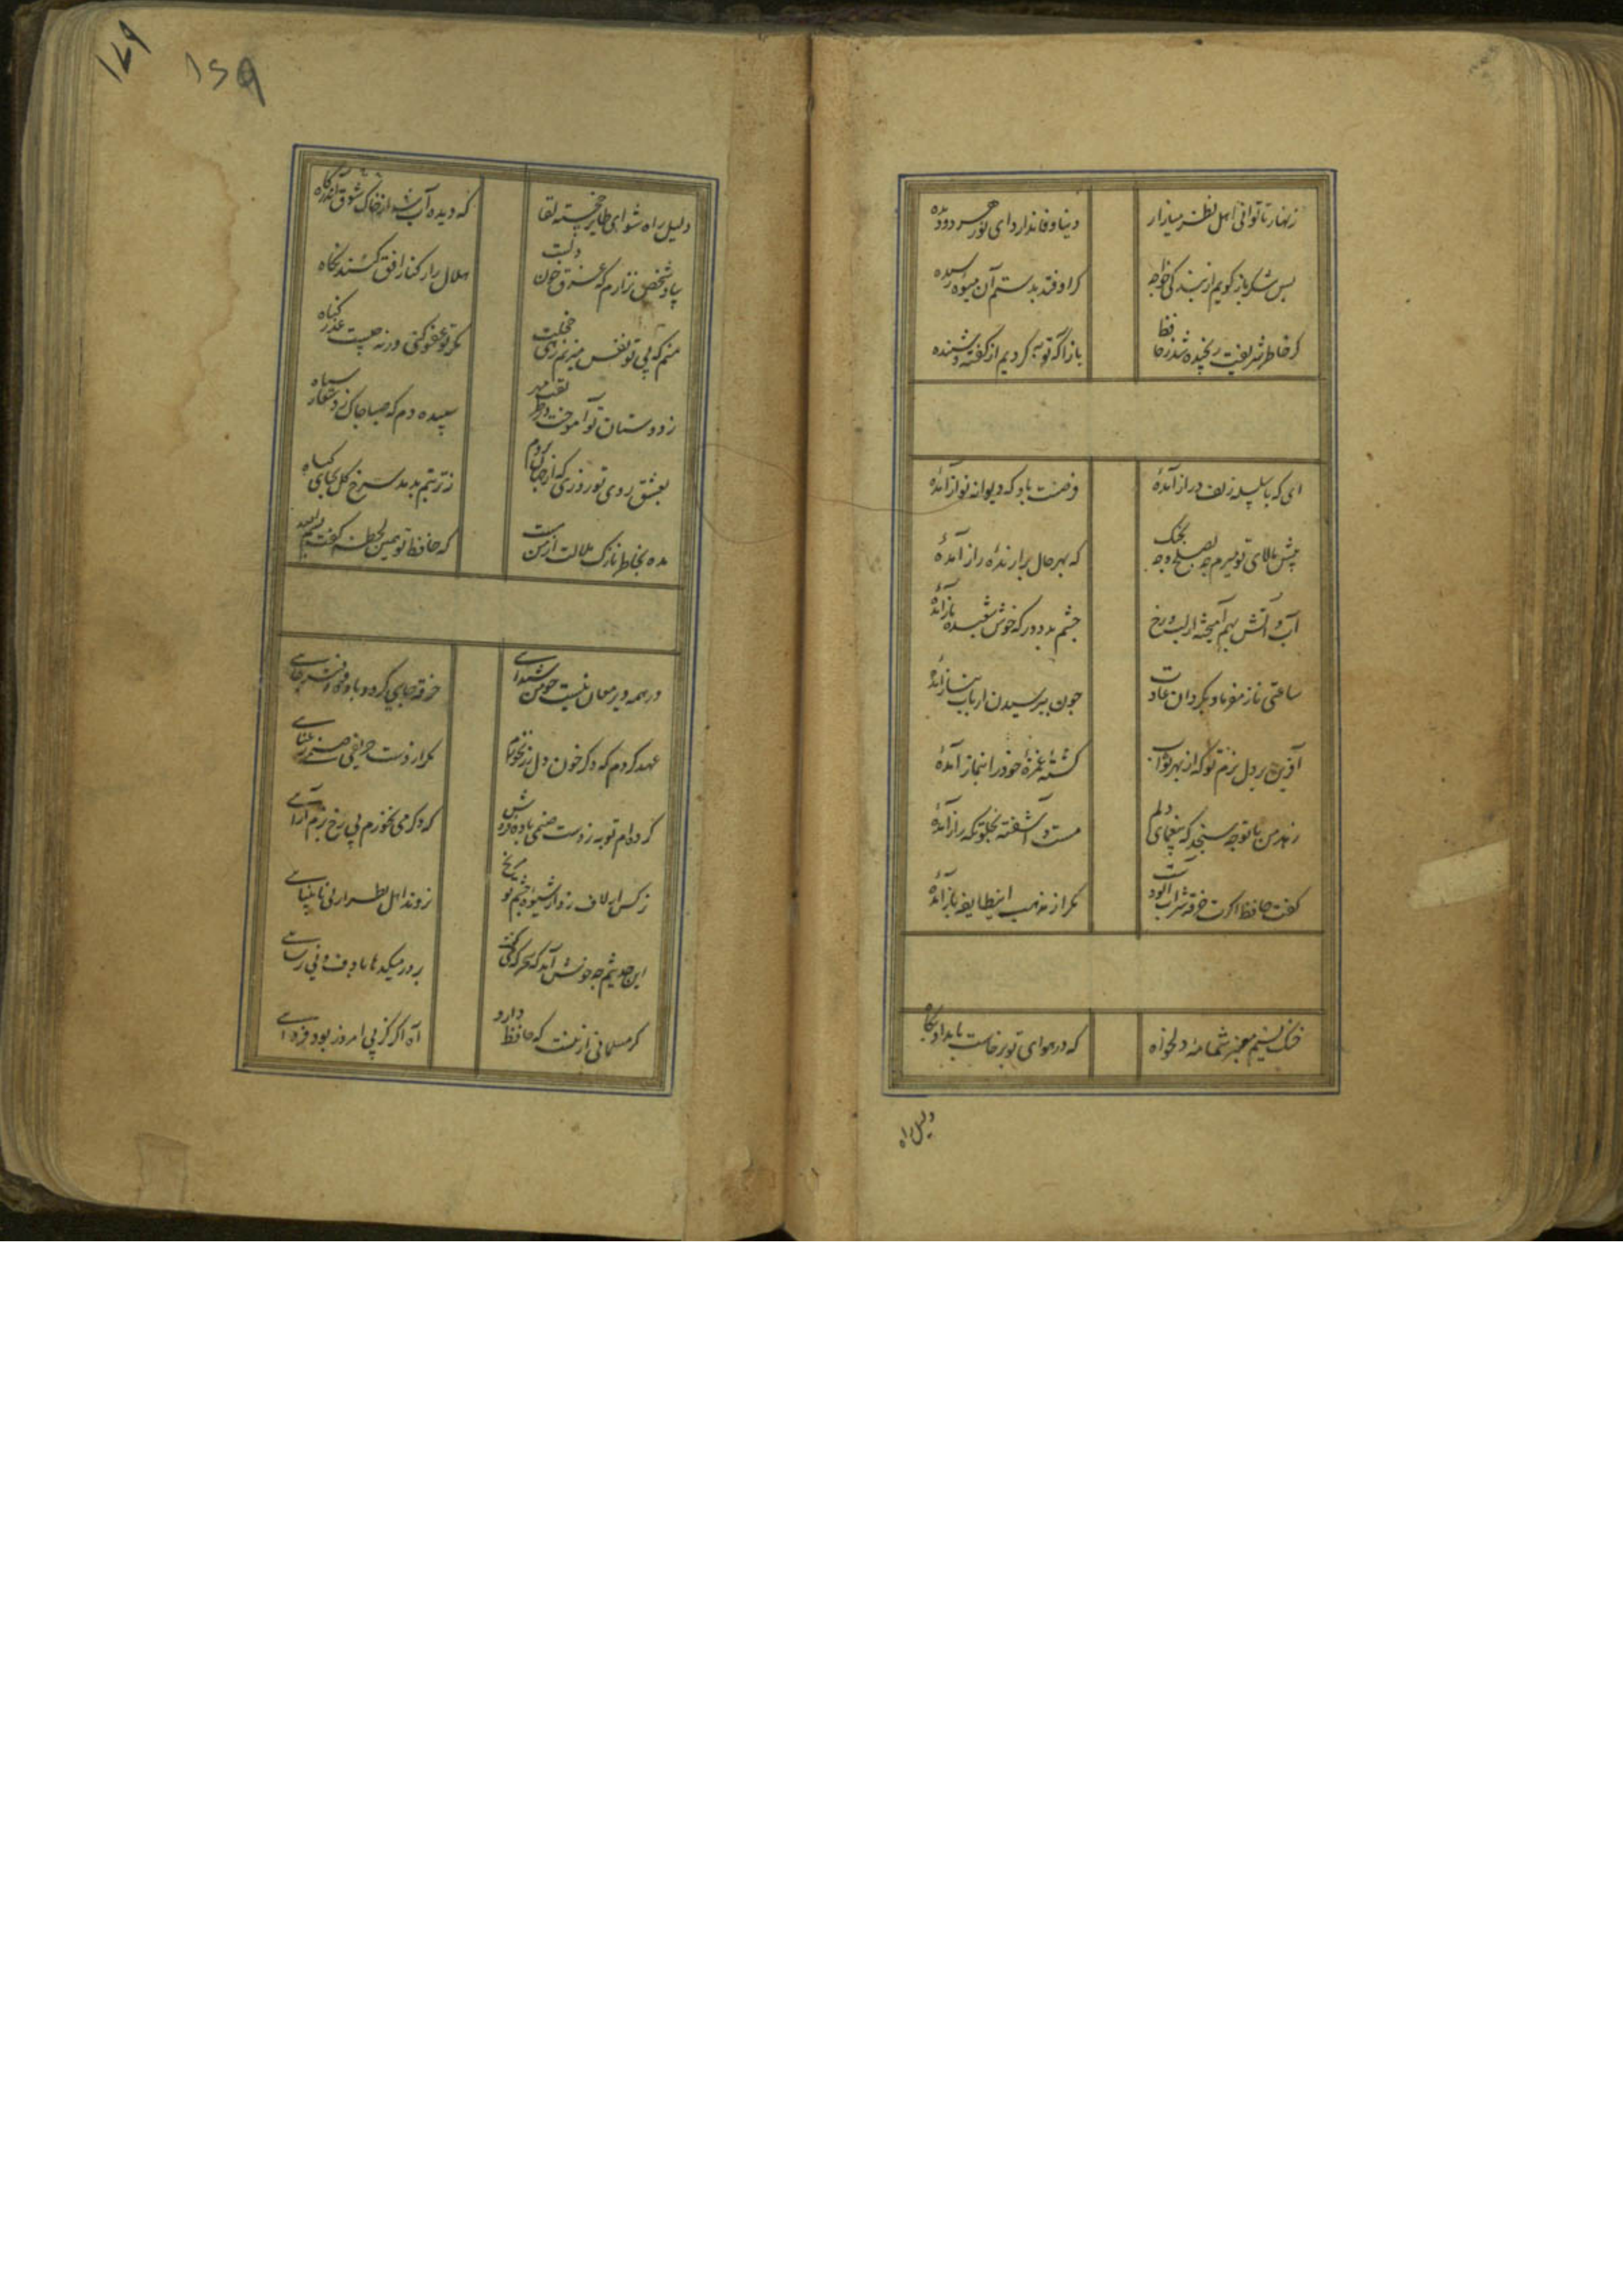 زنهار تا توانی اهل نظر میازار
دنیا وفا ندارد ای نور هر دو دیده
بس شکر باز کویم از بندکی خواجه
کر اوفتد بدستم آن میوه رسیده
کر خاطر شریفت رنجیده شد ز حافظ
باز آ که توبه کردیم از کفته و شنیده
ای که با سلسله زلف دراز آمدهٔ
فرصتت باد که دیوانه نواز آمدهٔ
پیش بالای تو میرم چه بصلح و چه بجنک
که بهر حال برازندهٔ راز آمدهٔ
آب و آتش بهم آمیخته از لب و رخ
چشم بد دور که خوش شعبده باز آمدهٔ
ساعتی ناز مفرما و بکردان عادت
چون بپرسیدن ارباب نیاز آمدهٔ
آفرین بر دل نرم تو که از بهر ثواب
کشتهٔ غمزهٔ خود را بنماز آمدهٔ
زهد من با تو چه سنجد که بیغمای دلم
مست و آشفته بخلوتکه راز آمدهٔ
کفت حافظ دکرت خرقه شراب آلودست
مکر از مذهب این طایفه باز آمدهٔ
خنک نسیم معنبر شمامهٔ دلخواه
که در هوای تو برخاست بامداد بکاه
دلیل راه
۱۷۹
۱۵۹
دلیل راه شو ای طایر خجسته لقا
که دیده آب شد از شوق خاک آن درکاه
بیاد شخص نزارم که غرق خون دلست
هلال را ز کنار افق کنند نکاه
منم که بی تو نفس میزنم زهی خجلت
مکر تو عفو کنی ورنه چیست عذر کناه
ز دوستان تو آموخت در طریقت مهر
سپیده دم که صبا چاک زد شعار سیاه
بعشق روی تو روزی که از جهان بروم
ز تربتم بدمد سرخ کل بجای کیاه
مده بخاطر نازک ملالت از من
که حافظ تو همین لحظه کفت بسم الله
در همه دیر مغان نیست چو من شیدایی
خرقه جایی کرو و باده و دفتر جایی
عهد کردم که دکر خون دل رز نخورم
مکر از دست حریفی صنمی رعنایی
کرده ام توبه ز دست صنمی باده فروش
که دکر می نخورم بی رخ بزم آرایی
نرکس ار لاف زد از شیوه چشم تو مرنج
نروند اهل نظر از پی نابینایی
این حدیثم چه خوش آمد که سحرکه میکفت
بر در میکدها با دف و نی ترسایی
کر مسلمانی ازینست که حافظ دارد
آه اکر از پی امروز بود فردایی